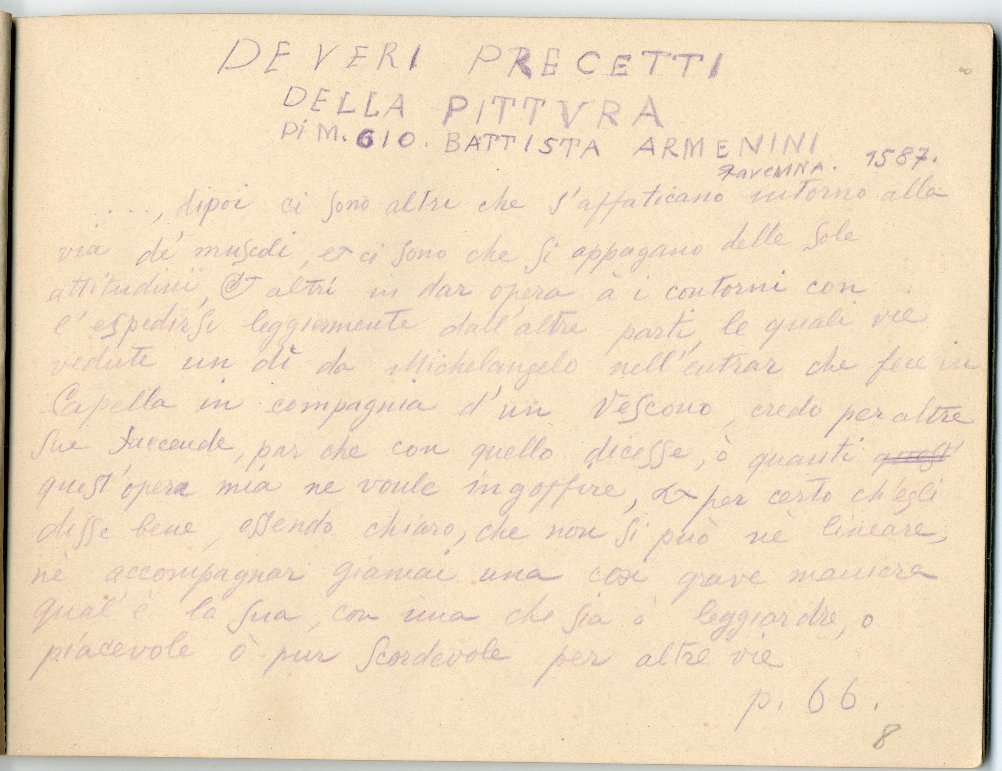 DE VERI PRECETTI
DELLA PITTVRA
Di M. GIO. BATTISTA ARMENINI
RAVENNA. 1587.
..., dipoi ci sono altri che s'affaticano intorno alla
via de' muscoli, et ci sono che si appagano delle sole
attitudini, & altri in dar opera à i contorni con
l'espedirsi leggiermente dall'altre parti, le quali vie
vedute un dì da Michelangelo nell'entrar che fece in
Capella in compagnia d'un Vescono, credo per altre
sue faccende, par che con quello dicesse, ò quanti quest'
quest'opera mia ne voule ingoffire, & per certo ch'egli
disse bene, essendo chiaro, che non si può nè lineare,
nè accompagnar giamai una così grave maniera
qual'è la sua, con una che sia ò leggiardre, o
piacevole ò pur scordevole per altre vie
p. 66.
8